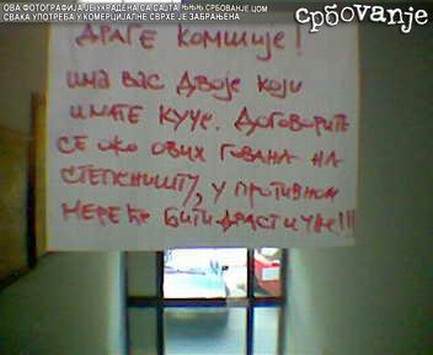 ОВА ФОТОГРАФИЈА ЈЕ УКРАДЕНА СА САЈТА ЊЊЊ СРБОВАЊЕ ЦОМ
СВАКА УПОТРЕБА У КОМЕРЦИЈАЛНЕ СВРХЕ ЈЕ ЗАБРАЊЕНА
србовање
ДРАГЕ КОМШИЈЕ!
ИМА ВАС ДВОЈЕ КОЈИ
ИМАТЕ КУЧЕ. ДОГОВОРИТЕ
СЕ ОКО ОВИХ ГОВАНА НА
СТЕПЕНИШТУ, У ПРОТИВНОМ
МЕРЕ ЋЕ БИТИ ДРАСТИЧНЕ!!!